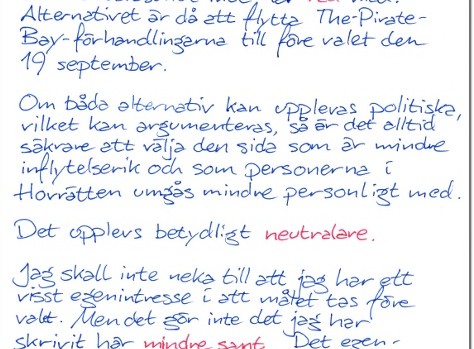 Alternativet är då att flytta The-Pirate-
Bay-förhandlingarna till före valet den
19 september.
Om båda alternativ kan upplevas politiska,
vilket kan argumenteras, så är det alltid
säkrare att välja den sida som är mindre
inflytelserik och som personerna i
Hovrätten umgås mindre personligt med.
Det upplevs betydligt neutralare.
Jag skall inte neka till att jag har ett
visst egenintresse i att målet tas före
valet. Men det gör inte det jag har
skrivit här mindre sant. Det egen-